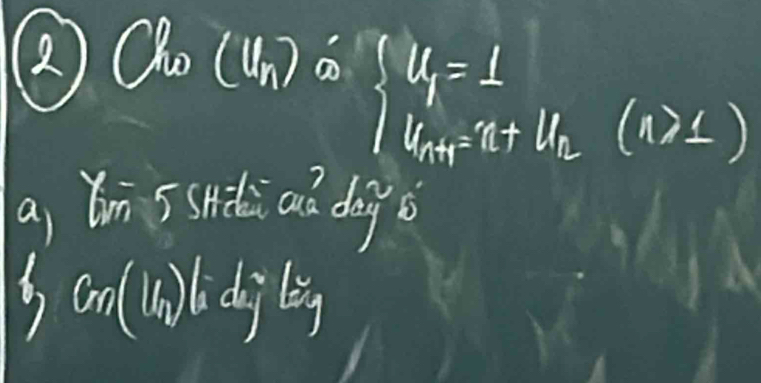 ② Cho (Uₙ) có { U₁ = 1
Uₙ₊₁ = n + Uₙ (n ≥ 1)
a) Tìm 5 SH đầu của dãy số
b) Cm (Uₙ) là dãy tăng